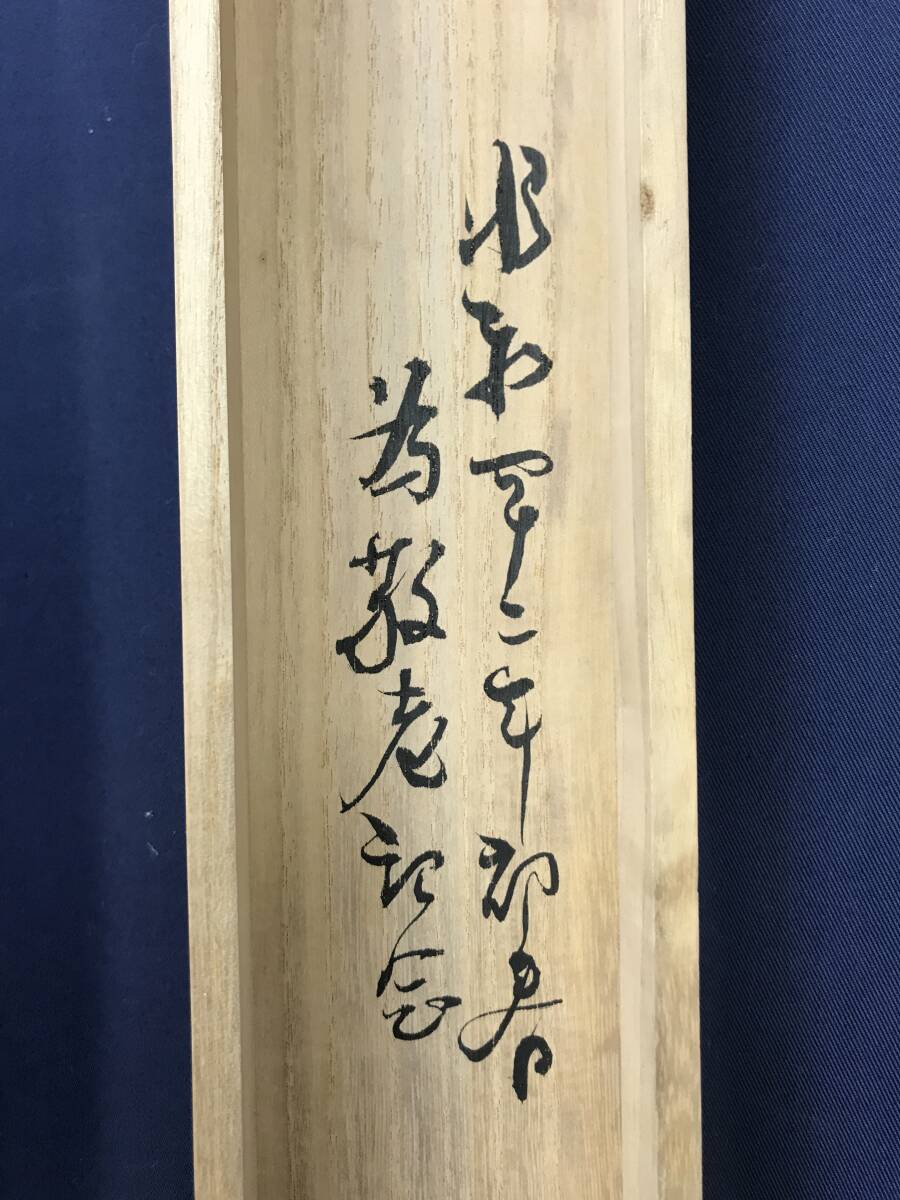 昭和四十二年初春
為敬老記念